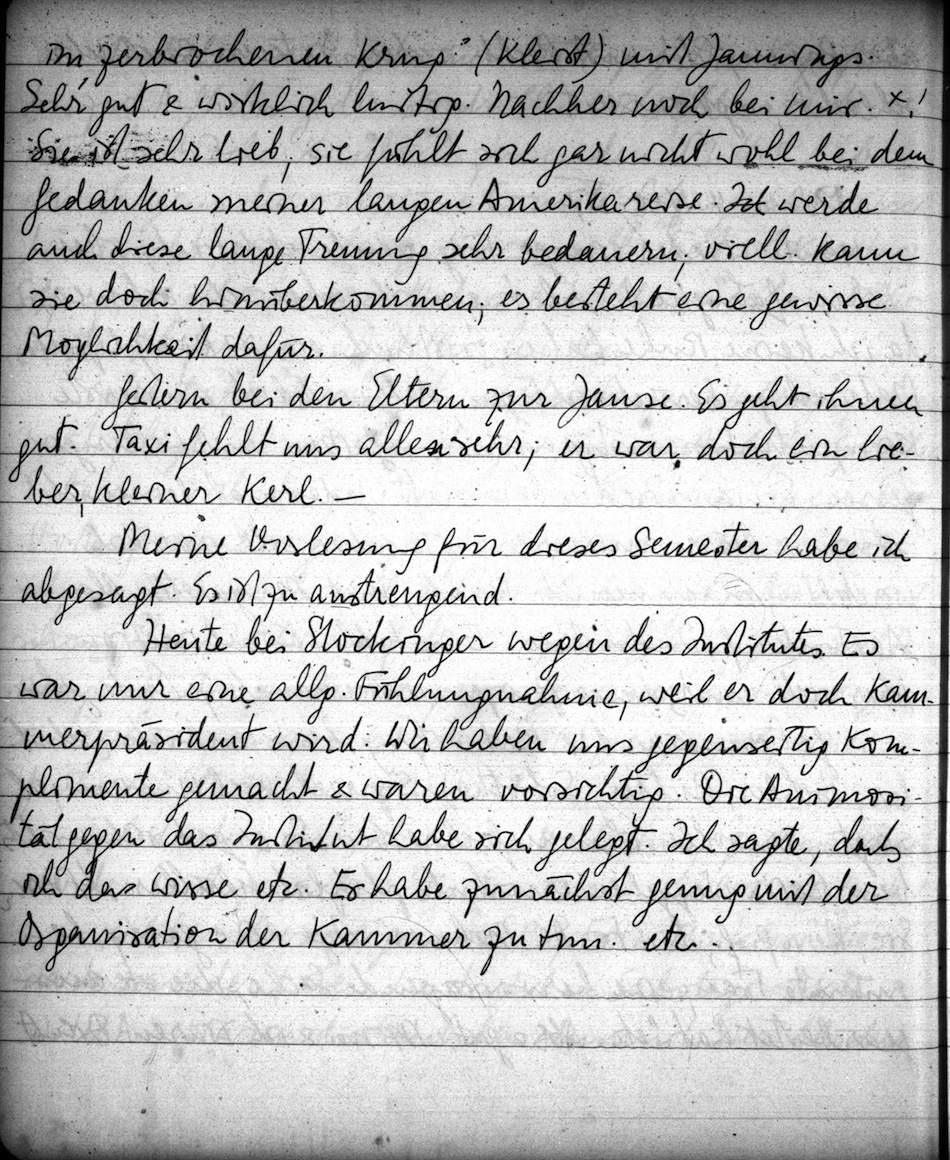 im zerbrochenen Krug" (Kleist) mit Jannings.
Sehr gut & wirklich lustig. Nachher noch bei mir. x!
Sie ist sehr lieb, sie fühlt sich gar nicht wohl bei dem
Gedanken meiner langen Amerikareise. Ich werde
auch diese lange Trennung sehr bedauern; viell. kann
sie doch hinüberkommen; es besteht eine gewisse
Möglichkeit dafür.
Gestern bei den Eltern zur Jause. Es geht ihnen
gut. Taxi fehlt uns allen sehr; er war doch ein lie-
ber, kleiner Kerl. —
Meine Vorlesung für dieses Semester habe ich
abgesagt. Es ist zu anstrengend.
Heute bei Stockinger wegen des Institutes. Es
war nur eine allg. Fühlungnahme, weil er doch Kam-
merpräsident wird. Wir haben uns gegenseitig Kom-
plimente gemacht & waren vorsichtig. Die Animosi-
tät gegen das Institut habe sich gelegt. Ich sagte, dass
ich das wisse etc. Er habe zunächst genug mit der
Organisation der Kammer zu tun. etc...